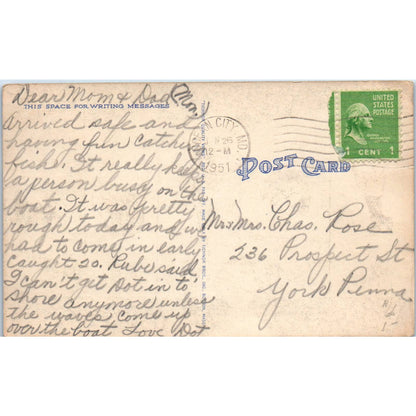 Dear Mom & Dad (Mon)
THIS SPACE FOR WRITING MESSAGES
Arrived safe and
having fun catching
fish. It really keeps
a person busy on the
boat. It was pretty
rough today and we
had to come in early
caught 20. Rube said
I can't get Dot in to
shore anymore unless
the waves come up
over the boat Love Dot
CITY, MD.
2-M
1951
UNITED
STATES
POSTAGE
1 CENT 1
POST CARD
Mr. & Mrs. Chas. Rose
236 Prospect St
York Penna